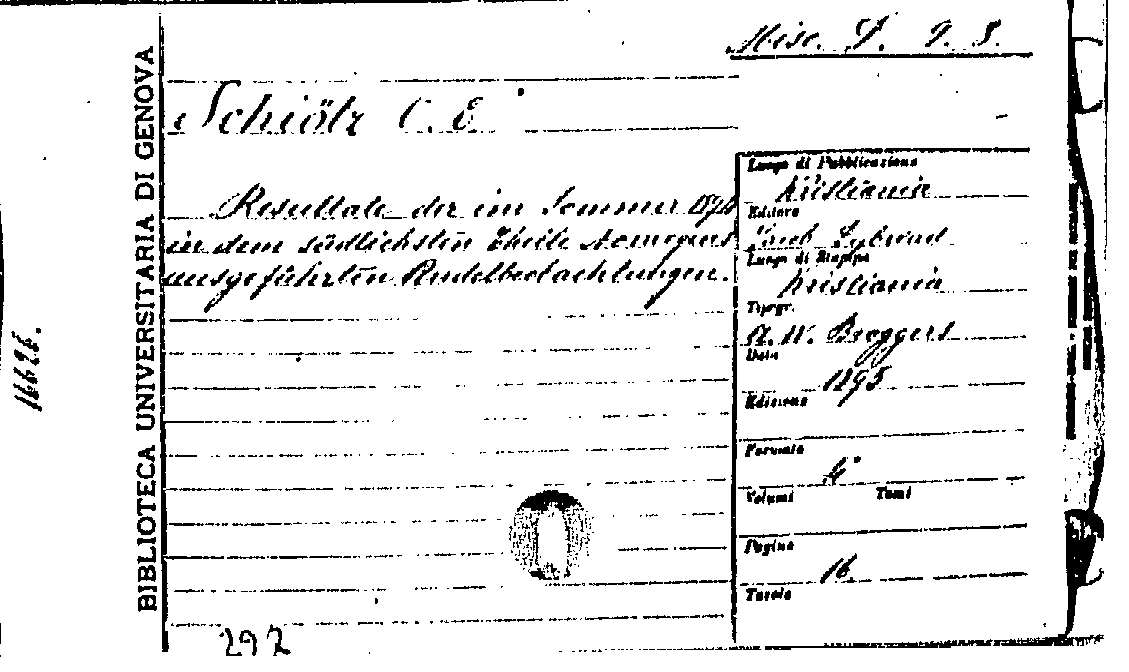 Misc. S. 9. 5.
BIBLIOTECA UNIVERSITARIA DI GENOVA
Schiötz O. E.
Resultate der im Sommer 1894
in dem südlichsten Theile Norwegens
ausgeführten Pendelbeobachtungen.
Luogo di Pubblicazione
Kristiania
Editore
Jacob Dybwad
Luogo di Stampa
Kristiania
Tipogr.
A. W. Broggers
Data
1895
Edizione
Formato
4°
Volumi Tomi
Pagine
16
Tavole
292